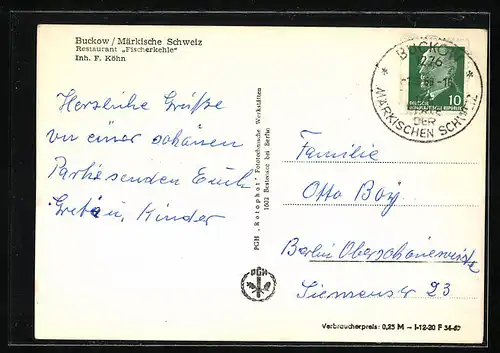 Buckow / Märkische Schweiz
Restaurant „Fischerkehle"
Inh. F. Köhn
Herzliche Grüße
von einer schönen
Partie senden Euch
Kinder
PGH „Rotophot" Fototechnische Werkstätten
1602 Bestensee bei Berlin
PGH
BUCKOW
DER
MÄRKISCHEN SCHWEIZ
DEUTSCHE
DEMOKRATISCHE REPUBLIK
10
Familie
Otto Boy
Berlin Oberschöneweide
Siemensstr 23
Verbraucherpreis: 0,25 M – I-12-20 F 34-67